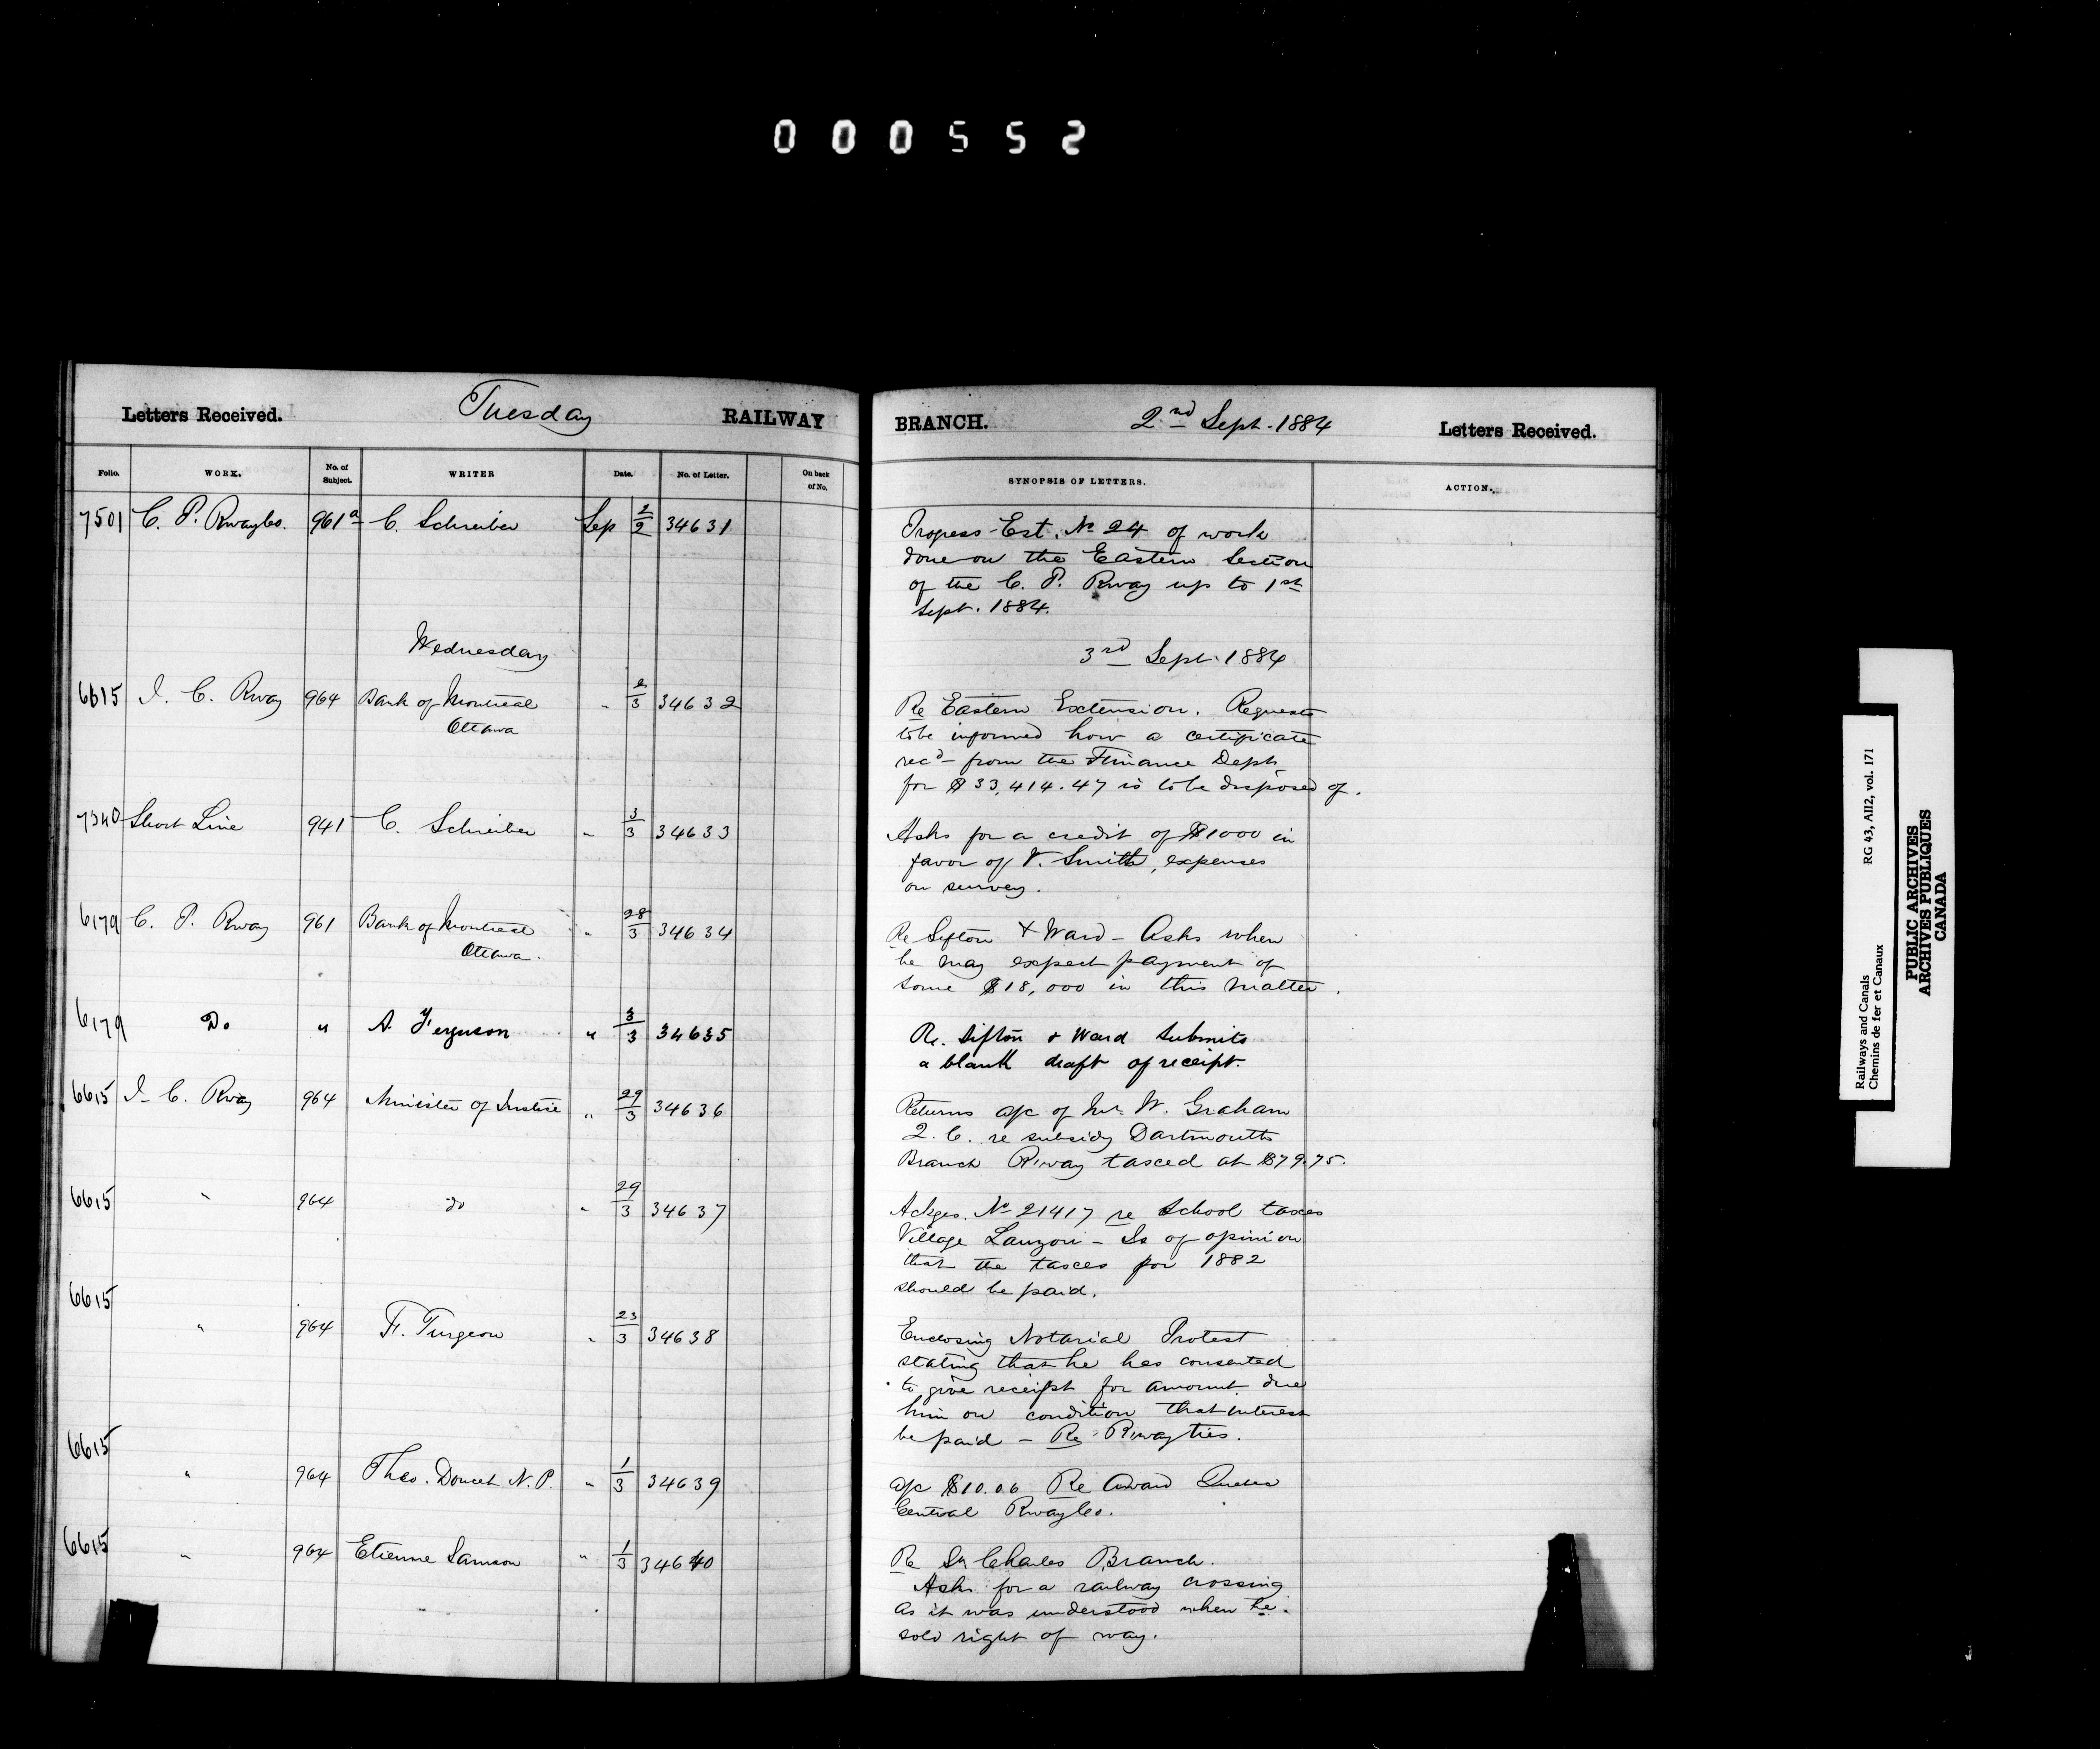 000552
Letters Received. Tuesday RAILWAY BRANCH. 2nd Sept. 1884 Letters Received.
Folio. WORK. No. of Subject. WRITER Date. No. of Letter. On back of No. SYNOPSIS OF LETTERS. ACTION.
7501 C. P. Rway Co. 961a C. Schreiber Sep 2/2 34631 Progress Est. No 24 of work
done on the Eastern Section
of the C. P. Rway up to 1st
Sept. 1884.
Wednesday 3rd Sept. 1884
6615 I. C. Rway 964 Bank of Montreal " 2/3 34632 Re Eastern Extension. Requests
Ottawa to be informed how a certificate
recd from the Finance Dept
for $33,414.47 is to be disposed of.
7340 Short Line 941 C. Schreiber " 3/3 34633 Asks for a credit of $1000 in
favor of V. Smith, expenses
on survey.
6179 C. P. Rway 961 Bank of Montreal " 28/3 34634 Re Sifton & Ward - Asks when
Ottawa. he may expect payment of
some $18,000 in this matter.
6179 Do " A. Ferguson " 3/3 34635 Re. Sifton & Ward Submits
a blank draft of receipt.
6615 I. C. Rway 964 Minister of Justice " 29/3 34636 Returns a/c of Mr. W. Graham
Q. C. re subsidy Dartmouth
Branch Rway taxed at $79.75.
6615 " 964 do " 29/3 34637 Ackges. No 21417 re School taxes
Village Lauzon - Is of opinion
that the taxes for 1882
should be paid.
6615 " 964 F. Turgeon " 23/3 34638 Enclosing Notarial Protest
stating that he has consented
to give receipt for amount due
him on condition that interest
be paid - Re Rway ties.
6615 " 964 Theo. Doucet N.P. " 1/3 34639 a/c $10.06 Re Award Quebec
Central Rway Co.
6615 " 964 Etienne Samson " 1/3 34640 Re St Charles Branch.
Asks for a railway crossing
as it was understood when he
sold right of way.
Railways and Canals RG 43, AII2, vol. 171
Chemins de fer et Canaux
PUBLIC ARCHIVES
ARCHIVES PUBLIQUES
CANADA